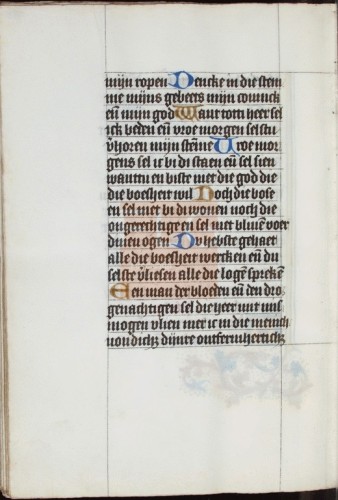 mijn ropen Dencke in die stem
me mijns gebeets mijn coninck
eñ mijn god Want toth heer sel
ick beden eñ vroe morgen selstu
v̓horen mijn stẽme Vroe mor
gens sel ic bi di staen eñ sel sien
want du en biste niet die god die
die boesheit wil Noch die bose
en sel niet bi di wonen noch die
ongerechtige en sel niet bliuen voer
dinen ogen Du hebste gehaet
alle die boesheit wercken eñ du
selste v̓liesen alle die logẽ sprekẽ
Een man der bloeden eñ den dro
genachtigen sel die heer
mogen mer ic in die menich
uoudich&z dijnre ontfermherticħ